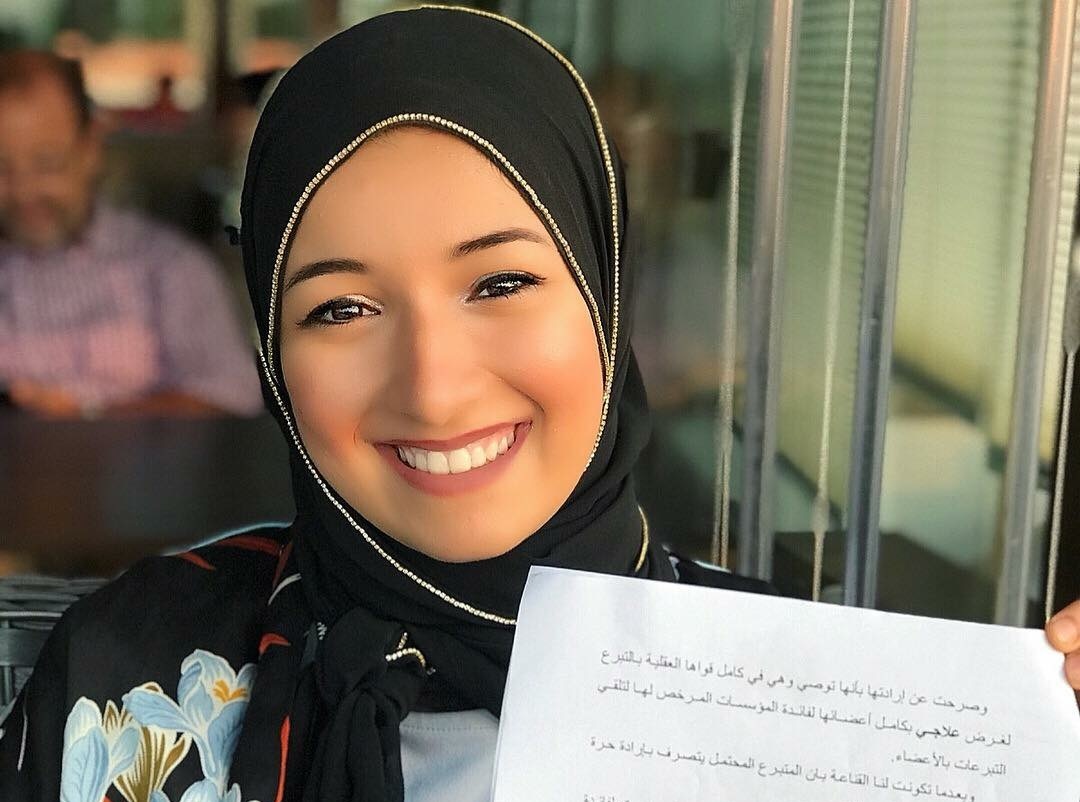 وصرحت عن إرادتها بأنها توصي وهي في كامل قواها العقلية بالتبرع
لغرض علاجي بكامل أعضائها لفائدة المؤسسات المرخص لها لتلقي
التبرعات بالأعضاء.
وبعدما تكونت لنا القناعة بان المتبرع المحتمل يتصرف بإرادة حرة
لفائدة